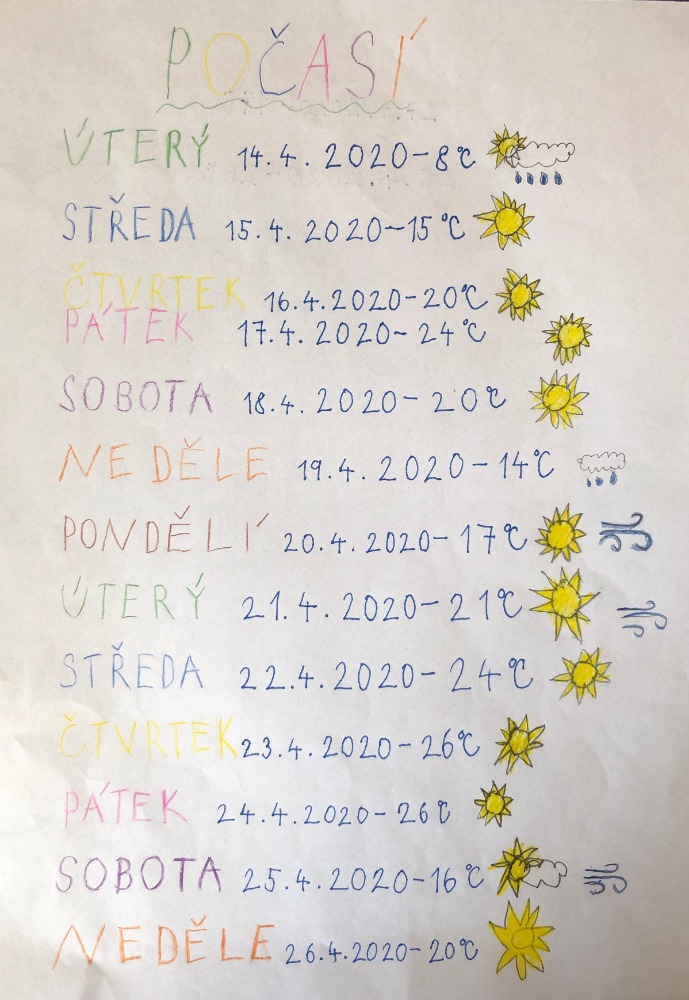 POČASÍ
ÚTERÝ 14.4. 2020-8°C
STŘEDA 15.4. 2020-15°C
ČTVRTEK 16.4.2020-20°C
PÁTEK 17.4. 2020-24°C
SOBOTA 18.4. 2020-20°C
NEDĚLE 19.4. 2020-14°C
PONDĚLÍ 20.4.2020-17°C
ÚTERÝ 21.4.2020-21°C
STŘEDA 22.4.2020-24°C
ČTVRTEK 23.4.2020-26°C
PÁTEK 24.4.2020-26°C
SOBOTA 25.4.2020-16°C
NEDĚLE 26.4.2020-20°C